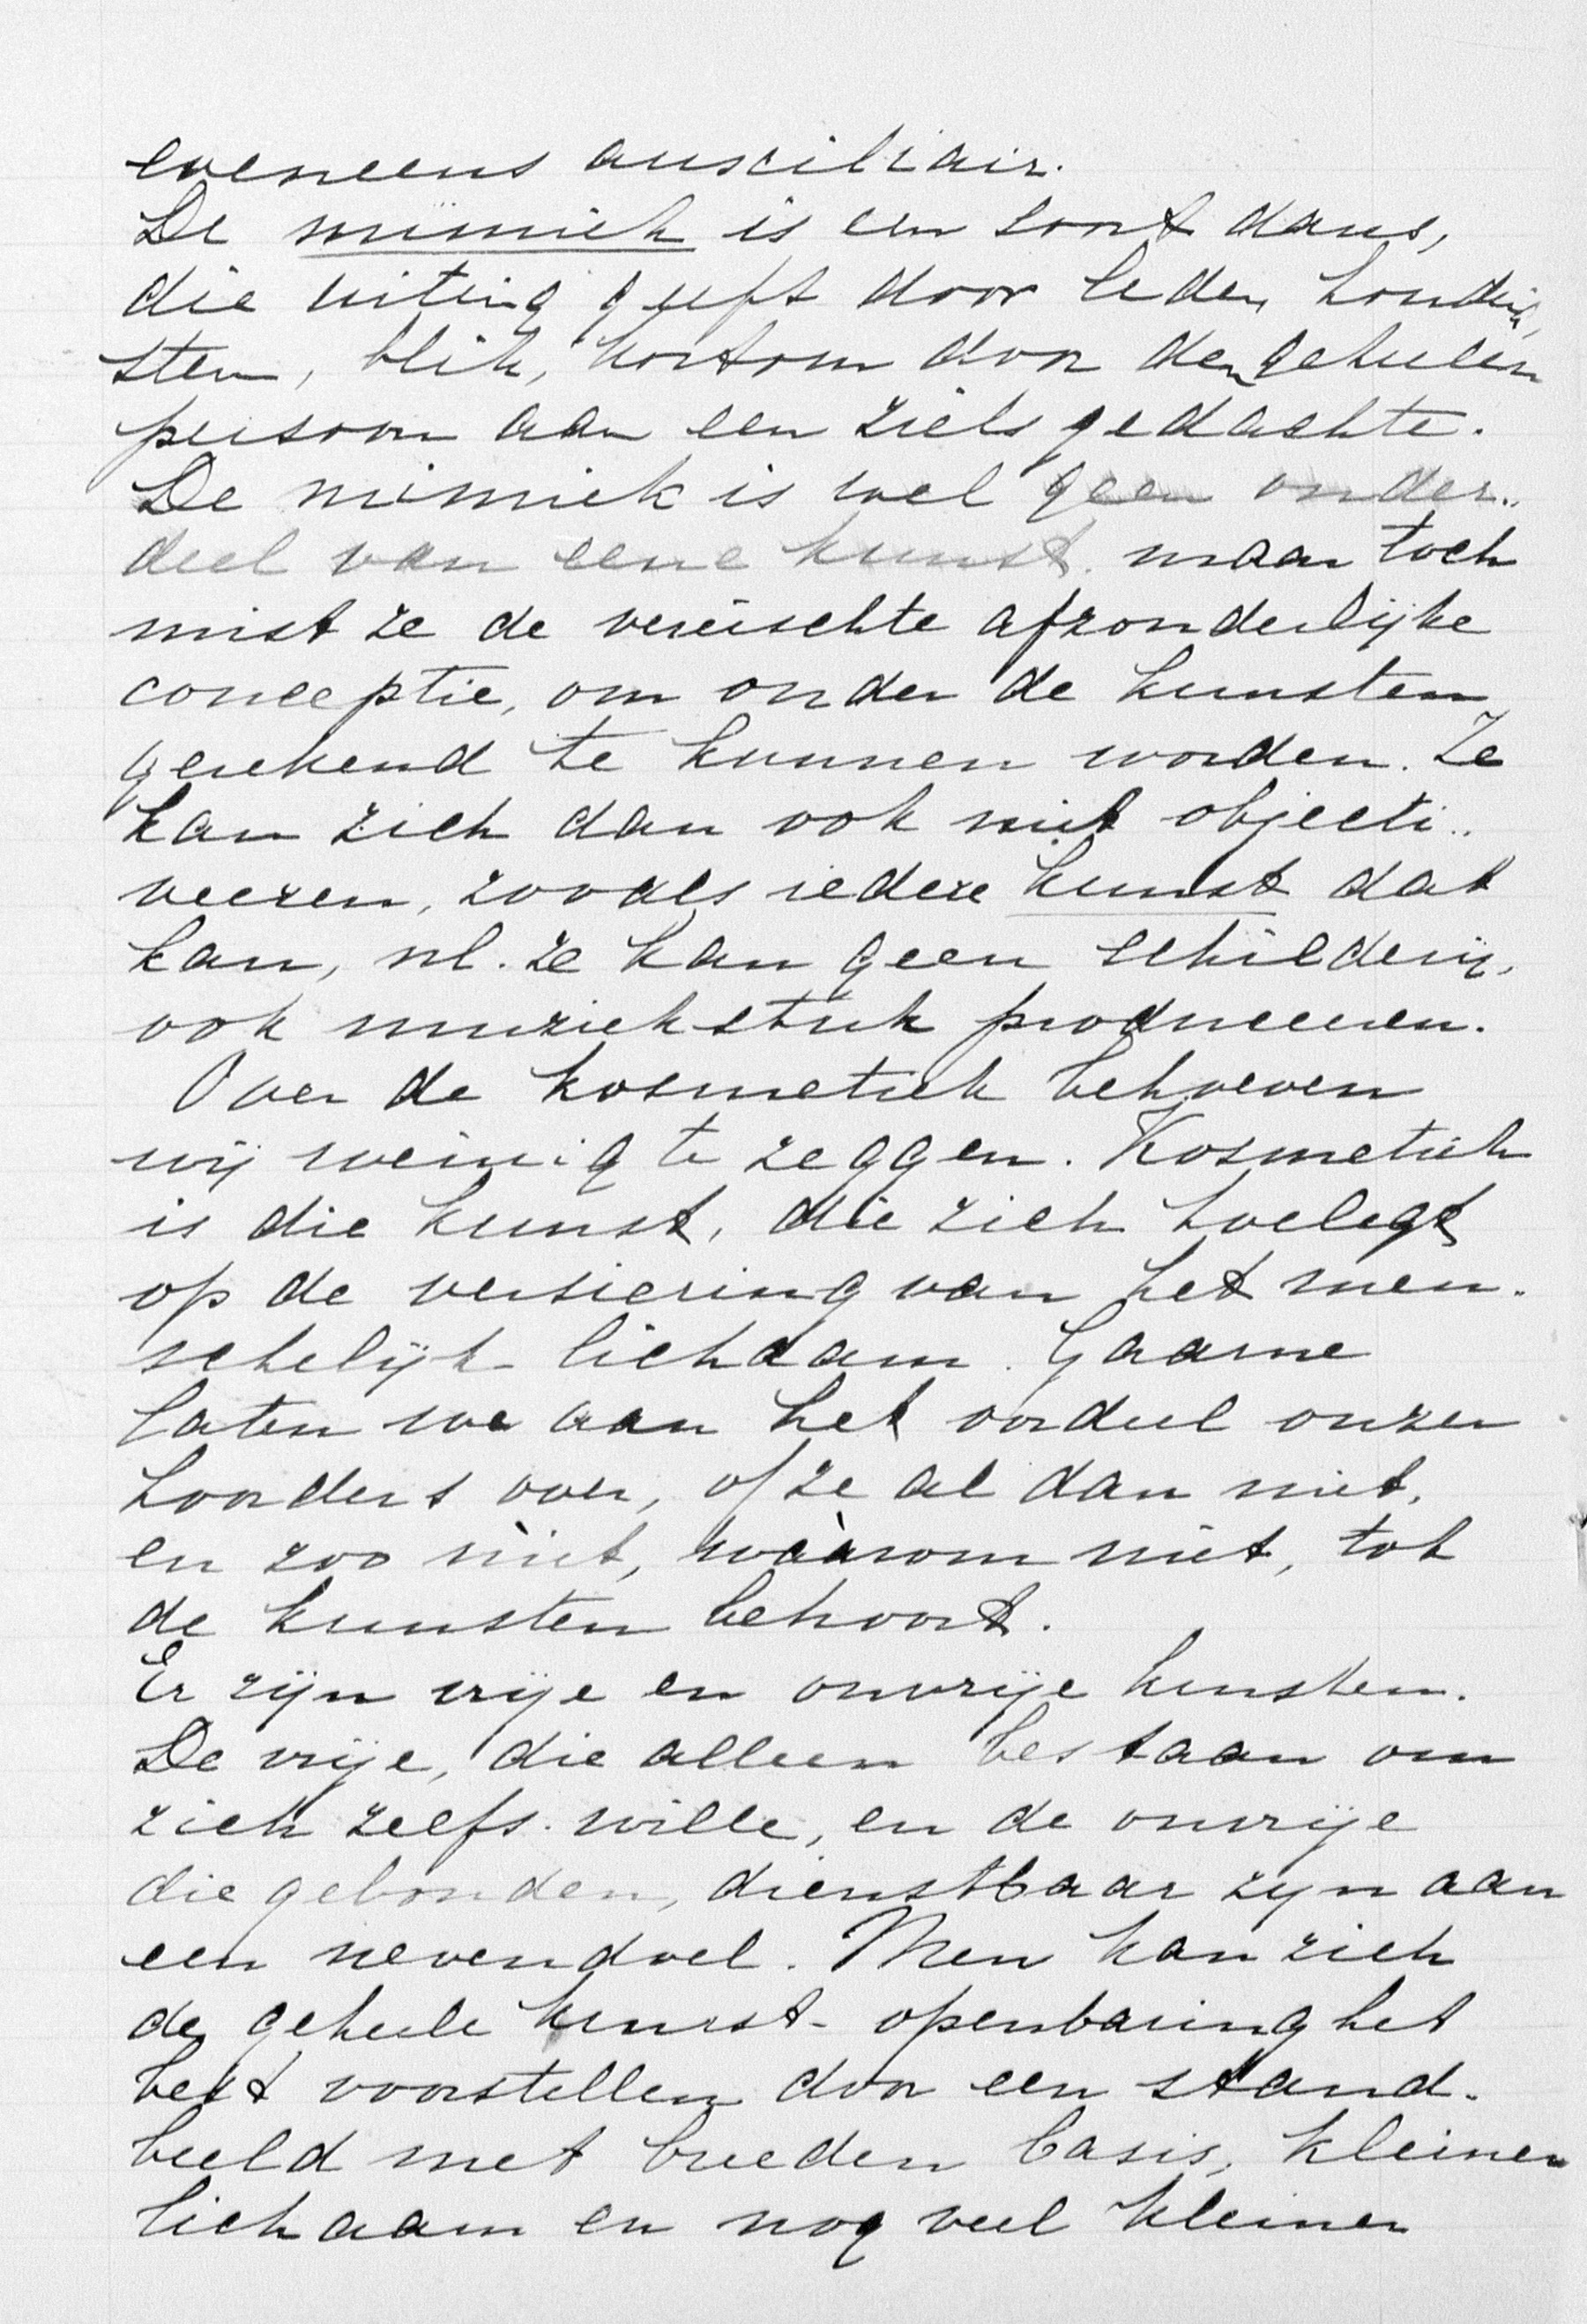 eveneens auxiliair.
De mimiek is een soort dans,
die uiting geeft door leden, houding,
stem, blik, kortom door den geheelen
persoon aan een ziels gedachte.
De mimiek is wel geen onder..
deel van eene kunst. maar toch
mist ze de vereischte afzonderlijke
conceptie, om onder de kunsten
gerekend te kunnen worden. Ze
kan zich dan ook niet objecti..
veeren, zooals iedere kunst dat
kan, nl. ze kan geen schilderij,
ook muziekstuk produceeren.
Over de kosmetiek behoeven
wij weinig te zeggen. Kosmetiek
is die kunst, die zich toelegt
op de versiering van het men.
schelijk lichaam. Gaarne
laten we aan het oordeel onzer
hoorders over, of ze al dan niet,
en zoo niet, wáárom niet, tot
de kunsten behoort.
Er zijn vrije en onvrije kunsten.
De vrije, die alleen bestaan om
zich zelfs wille, en de onvrije
die gebonden, dienstbaar zijn aan
een nevendoel. Men kan zich
de geheele kunst- openbaring het
best voorstellen door een stand-
beeld met breeden basis, kleiner
lichaam en nog veel kleiner